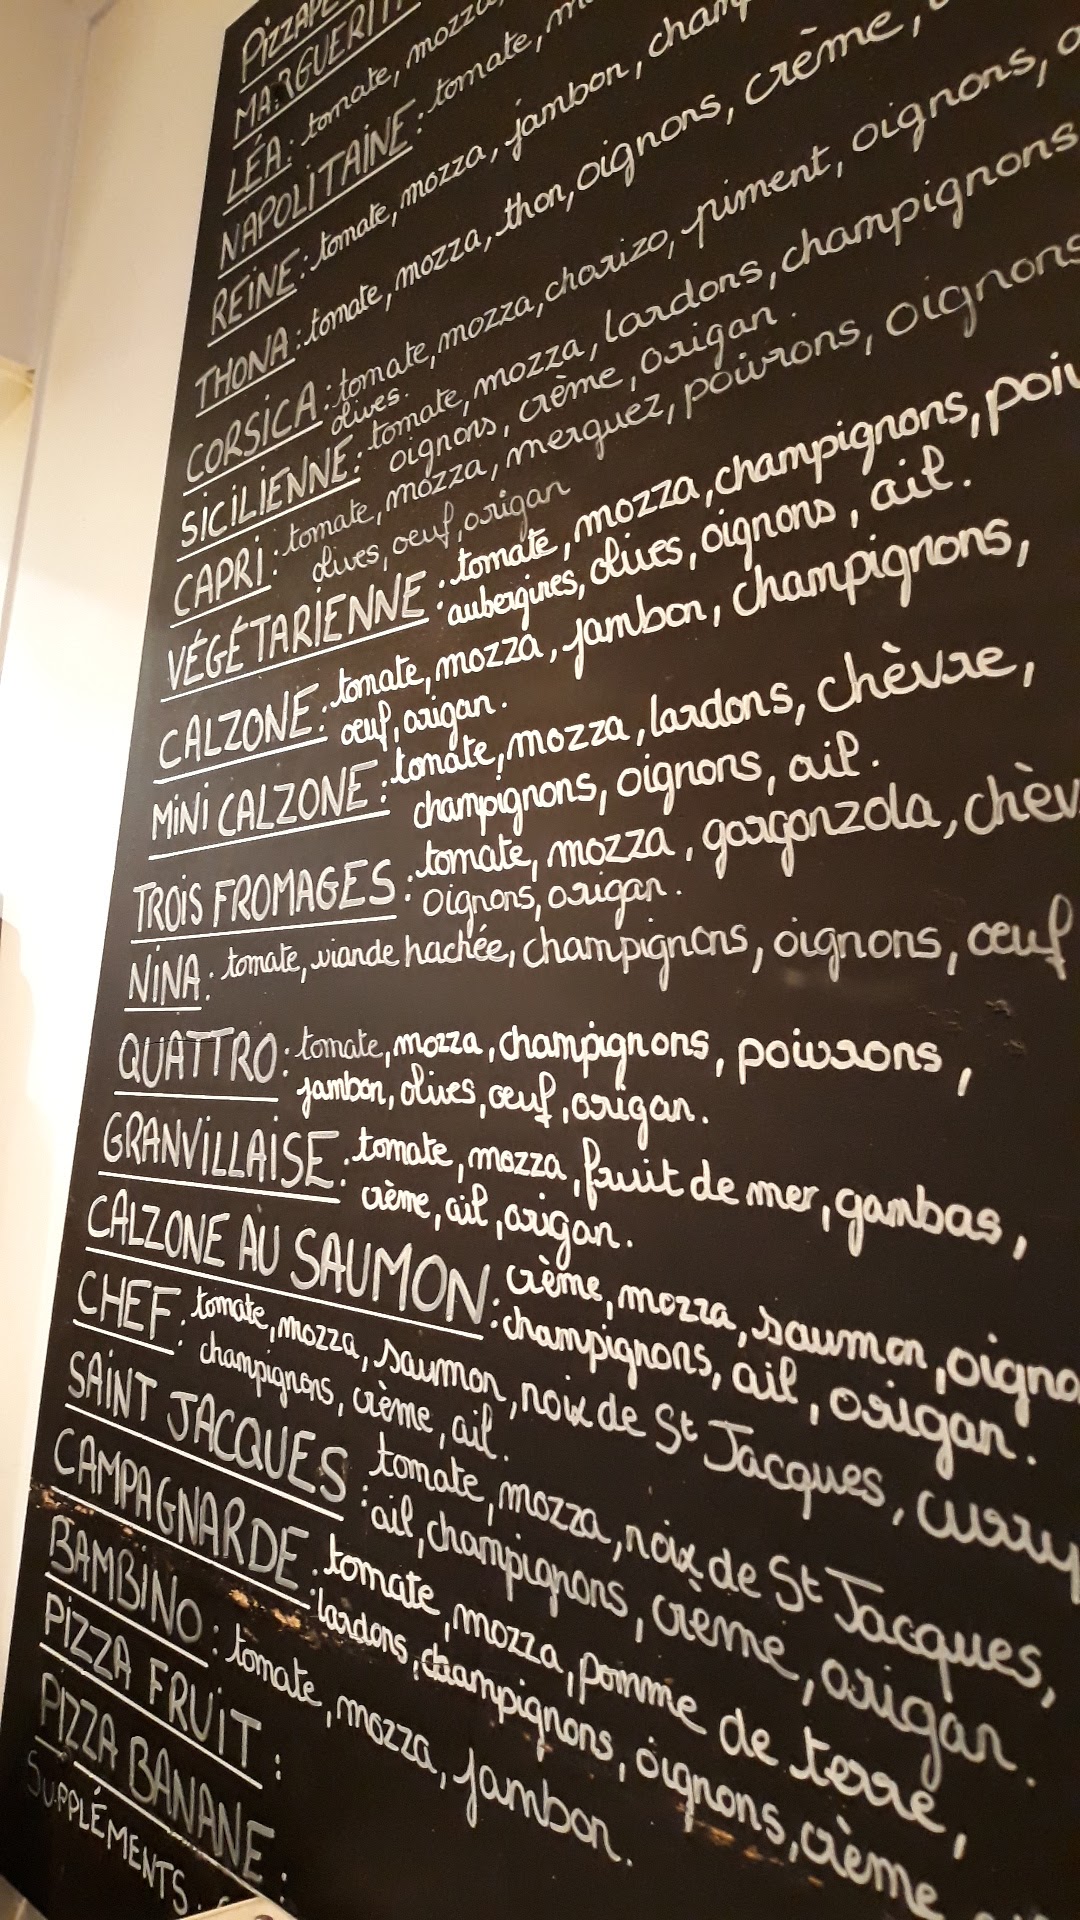 MARGUERIT
LÉA: tomate, mozza
NAPOLITAINE: tomate,
REINE: tomate, mozza, jambon,
THONA: tomate, mozza, thon, oignons, crème,
CORSICA: tomate, mozza, chorizo, piment, oignons,
olives.
SICILIENNE: tomate, mozza, lardons, champignons
oignons, crème, origan.
CAPRI: tomate, mozza, merguez, poivrons, oignons
olives, oeuf, origan
VÉGÉTARIENNE: tomate, mozza, champignons, poiv
aubergines, olives, oignons, ail.
CALZONE: tomate, mozza, jambon, champignons,
oeuf, origan.
MINI CALZONE: tomate, mozza, lardons, chèvre,
champignons, oignons, ail.
TROIS FROMAGES: tomate, mozza, gorgonzola, chèv
oignons, origan.
NINA: tomate, viande hachée, champignons, oignons, oeuf
QUATTRO: tomate, mozza, champignons, poivrons,
jambon, olives, oeuf, origan.
GRANVILLAISE: tomate, mozza, fruit de mer, gambas,
crème, ail, origan.
CALZONE AU SAUMON: crème, mozza, saumon, oigno
champignons, ail, origan.
CHEF: tomate, mozza, saumon, noix de St Jacques, curry
champignons, crème, ail.
SAINT JACQUES: tomate, mozza, noix de St Jacques,
ail, champignons, crème, origan.
CAMPAGNARDE: tomate, mozza, pomme de terre,
lardons, champignons, oignons, crème
BAMBINO: tomate, mozza, jambon.
PIZZA FRUIT:
PIZZA BANANE:
SUPPLÉMENTS: